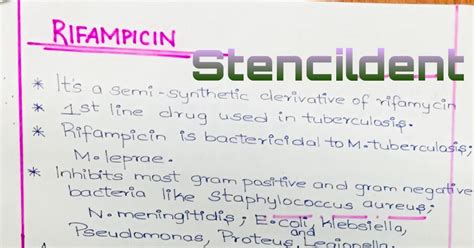 RIFAMPICIN
Stencildent
* It's a semi-synthetic derivative of rifamycin
* 1st line drug used in tuberculosis.
* Rifampicin is bactericidal to M.tuberculosis;
M.leprae.
* Inhibits most gram positive and gram negative
bacteria like Staphylococcus aureus;
N.meningitidis; E.coli, Klebsiella,
and
Pseudomonas, Proteus, Legionella.